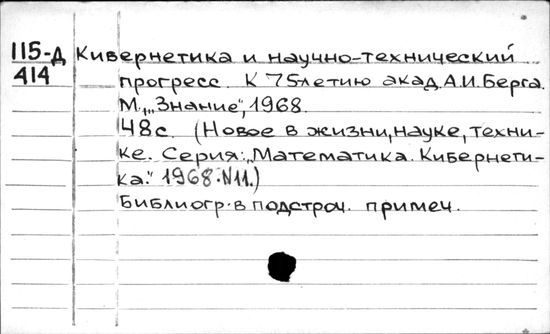 115-Д Кивернетика и научно-технический
414 прогресс. К 75летию акад. А.И. Берга.
М., „Знание", 1968.
48с. (Новое в жизни, науке, техни-
ке. Серия: „Математика. Кибернети-
ка." 1968. N11.)
Библиогр. в подстроч. примеч.